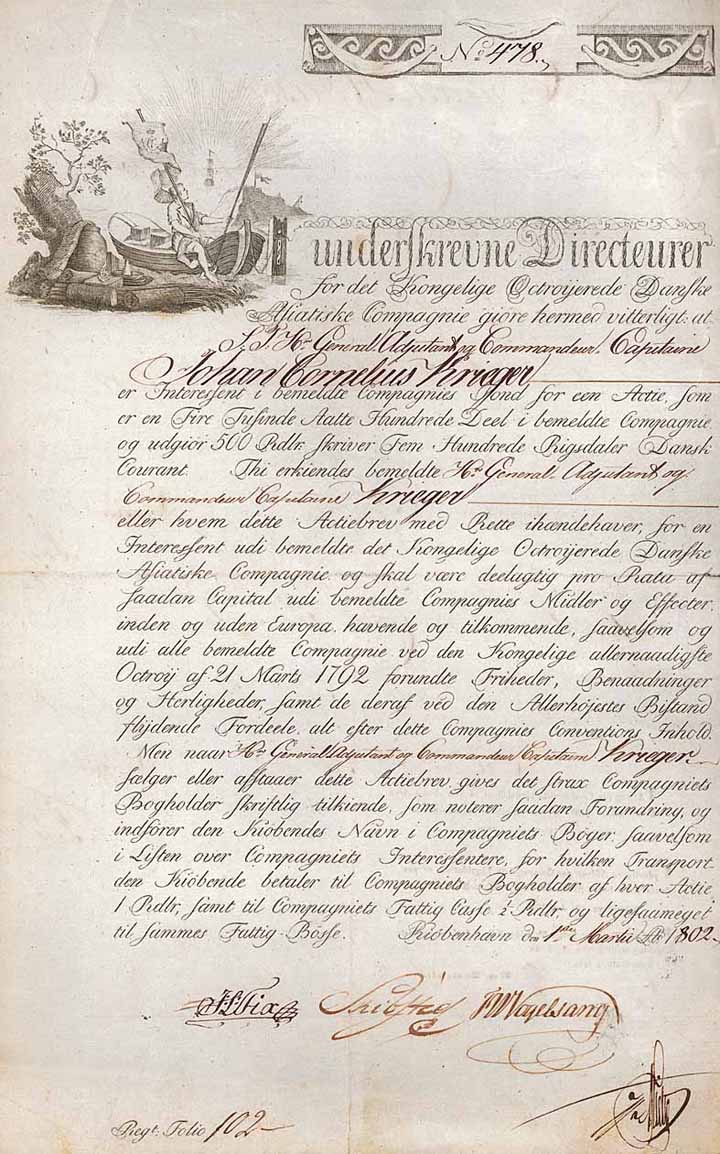 No 478.
underskrevne Directeurer
for det Kongelige Octroijerede Danske
Asiatiske Compagnie giöre hermed vitterligt: at
S. T. Hr. General. Adjutant og Commandeur. Capitaine
Johan Cornelius Krieger
er Interessent i bemeldte Compagnies Fond for een Actie, som
er en Fire Tusinde Aatte Hundrede Deel i bemeldte Compagnie,
og udgiör 500 Rdlr. skriver Fem Hundrede Rigsdaler Dansk
Courant. Thi erkiendes bemeldte Hr. General. Adjutant og
Commandeur Capitaine Krieger
eller hvem dette Actiebrev med Rette ihændehaver, for en
Interessent udi bemeldte det Kongelige Octroijerede Danske
Asiatiske Compagnie og skal være deelagtig pro Rata af
saadan Capital udi bemeldte Compagnies Midler og Effecter,
inden og uden Europa, havende og tilkommende, saavelsom og
udi alle bemeldte Compagnie ved den Kongelige allernaadigste
Octroij af 21 Marts 1792 forundte Friheder, Benaadninger
og Herligheder, samt de deraf ved den Allerhöjestes Bistand
flijdende Fordeele, alt efter dette Compagnies Conventions Inhold.
Men naar Hr. General Adjutant og Commandeur Capitain Krieger
sælger eller afstaaer dette Actiebrev gives det strax Compagniets
Bogholder skriftlig tilkiende, som noterer saadan Forandring, og
indförer den Kiöbendes Navn i Compagniets Böger, saavelsom
i Listen over Compagniets Interessentere, for hvilken Transport
den Kiöbende betaler til Compagniets Bogholder af hver Actie
1 Rdlr, samt til Compagniets Fattig Casse ½ Rdlr. og ligesaameget
til sammes Fattig-Bösse. Kiöbenhavn den 1ste Martii Ao 1802.
Fix PWVogelsang
Regt. Folio 102